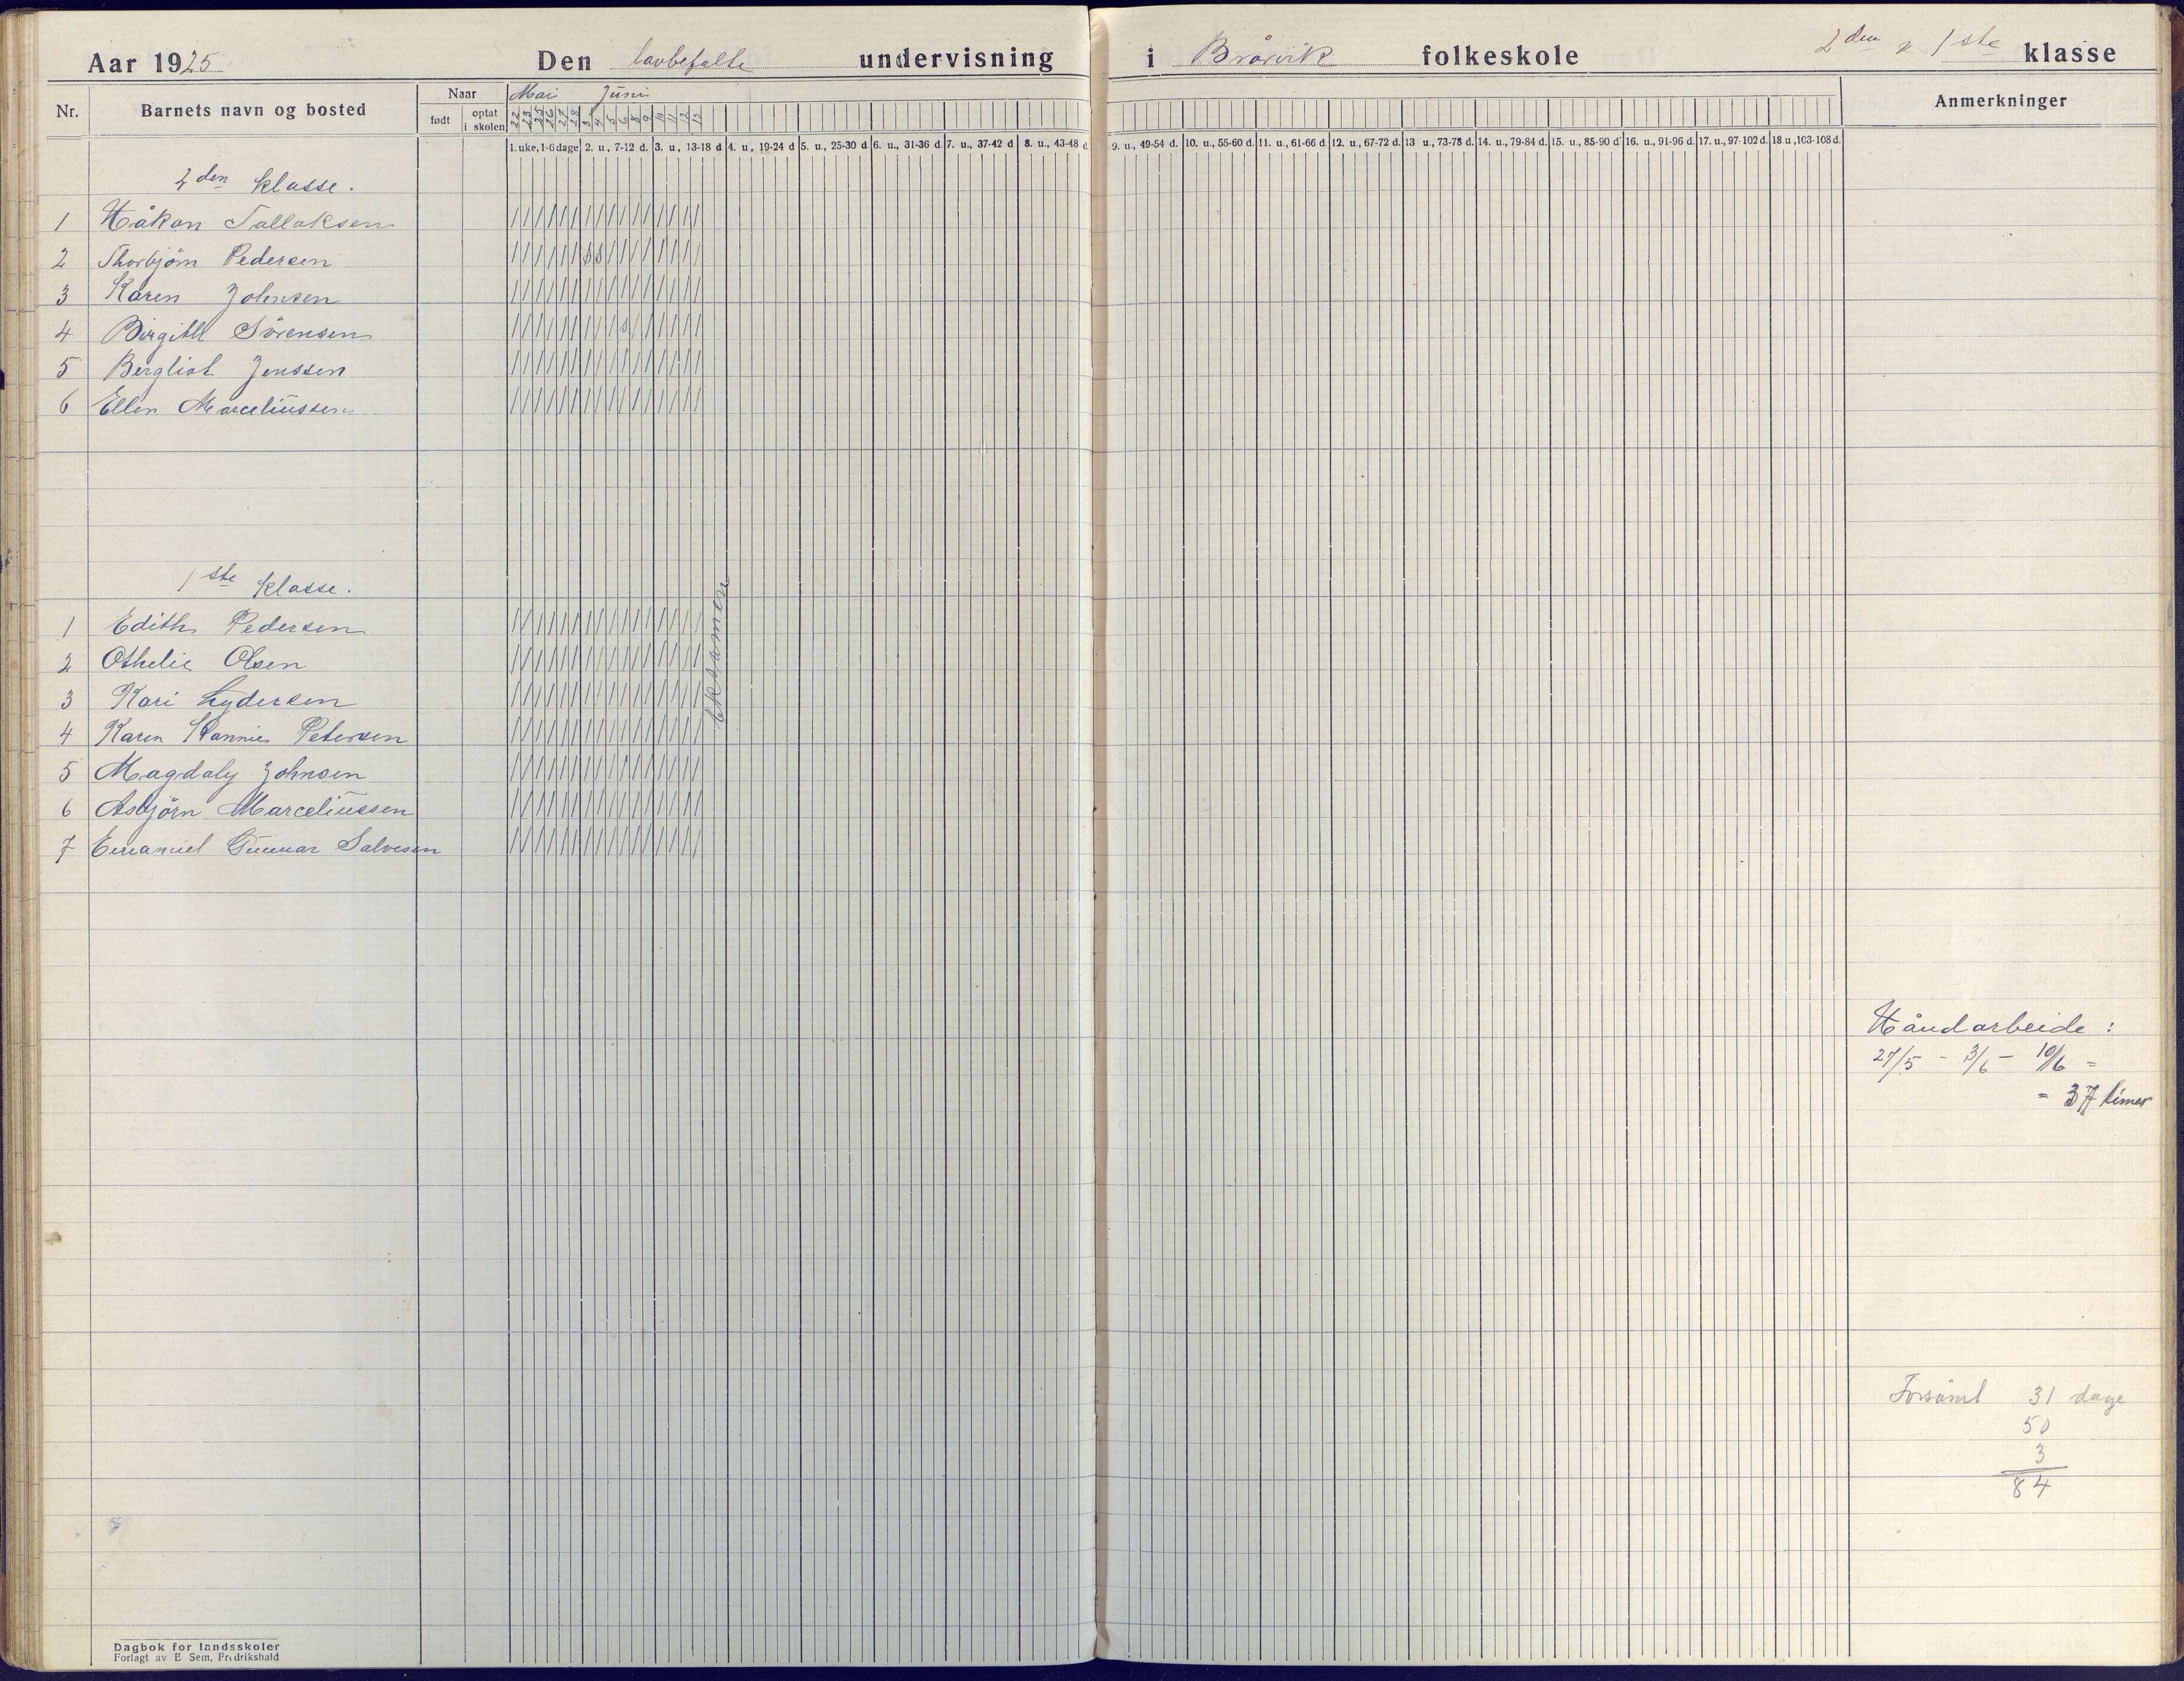 Aar 1925 Den lovbefalte undervisning i Bråvik folkeskole 2den & 1ste klasse
Nr. Barnets navn og bosted Naar født optat i skolen Mai Juni Anmerkninger
22 23 25 26 27 28 3 4 5 6 8 9 10 11 12 13
1. uke, 1-6 dage 2. u, 7-12 d. 3. u, 13-18 d 4. u, 19-24 d 5. u., 25-30 d. 6. u., 31-36 d. 7. u., 37-42 d 8. u., 43-48 d. 9. u., 49-54 d. 10. u., 55-60 d. 11. u., 61-66 d. 12. u., 67-72 d. 13 u., 73-78 d. 14. u., 79-84 d. 15. u., 85-90 d 16. u., 91-96 d. 17. u., 97-102 d. 18 u., 103-108 d.
2den klasse.
1 Håkon Tallaksen
2 Thorbjörn Pedersen
3 Karen Johnsen
4 Birgith Sörensen
5 Bergliot Jenssen
6 Ellen Marceliussen
1ste klasse.
1 Edith Pedersen
2 Othelie Olsen
3 Kari Lydersen
4 Karen Hannie Petersen
5 Magdaly Johnsen
6 Asbjörn Marceliussen
7 Emanuel Gunnar Salvesen
Eksamen
Håndarbeide:
27/5 - 3/6 - 10/6 =
= 37 timer
Forsömt 31 dage
50
3
84
Dagbok for landsskoler
Forlagt av E. Sem, Fredrikshald